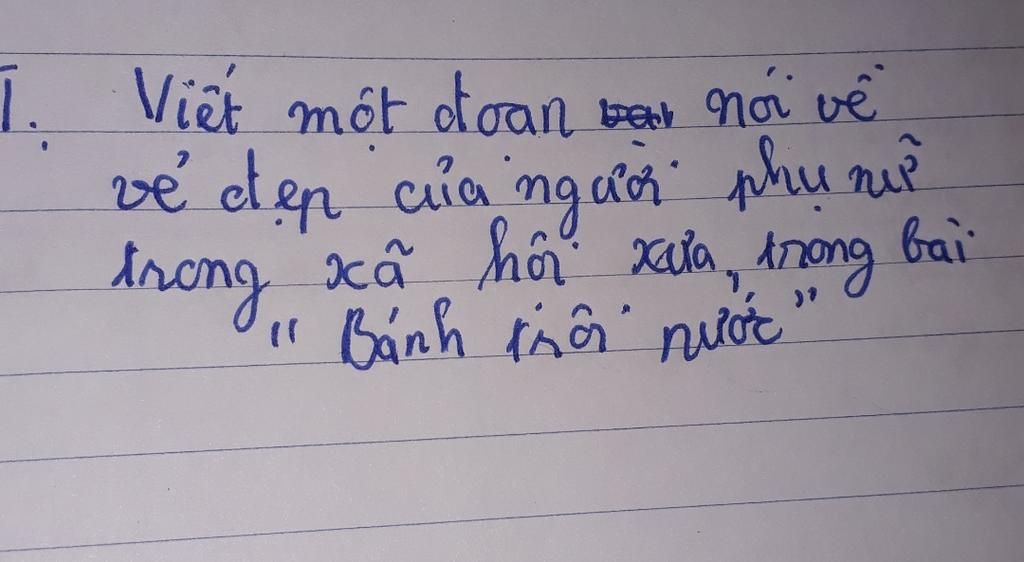 1. Viết một đoan nói về
vẻ đẹp của người phụ nữ
trong xã hội xưa, trong bài
“ Bánh trôi nước ”